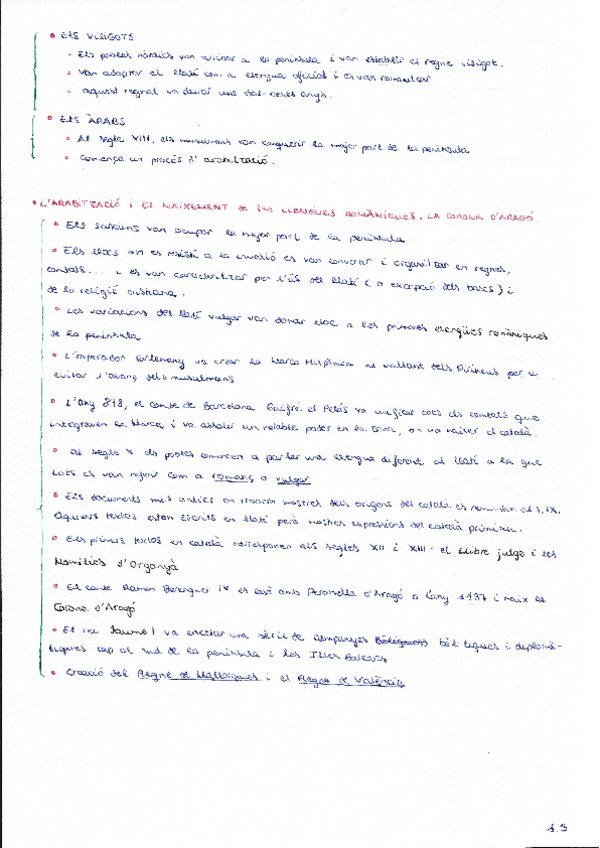 • ELS VISIGOTS
• Els pobles nòrdics van arribar a la península i van establir el regne visigot.
• Van adoptar el llatí com a llengua oficial i es van romanitzar
• aquest regnat va durar uns dos-cents anys.
• ELS ÀRABS
• Al segle VIII, els musulmans van conquerir la major part de la península
• Comença un procés d'arabització.
• L'ARABITZACIÓ i EL NAIXEMENT de les LLENGÜES ROMÀNIQUES. LA CORONA D'ARAGÓ.
• Els sarraïns van ocupar la major part de la península
• Els llocs on es resistí a la invasió es van convertir i organitzar en regnes,
comtats... i es van caracteritzar per l'ús del llatí (a excepció dels bascs) i
de la religió cristiana.
• Les variacions del llatí vulgar van donar lloc a les primeres llengües romàniques
de la península
• L'emperador Carlemany va crear la Marca Hispànica al voltant dels Pirineus per a
evitar l'avanç dels musulmans
• L'any 878, el comte de Barcelona Guifré el Pelós va unificar tots els comtats que
integraven la Marca i va establir un notable poder en la zona, on va naixer el català.
• Al segle X els pobles comencen a parlar una llengua diferent al llatí a la que
tots es van referir com a romanç o vulgar
• Els documents més antics on trobem mostres dels orígens del català es remunten al S. IX.
Aquests textos estan escrits en llatí però mostren expressions del català primitiu.
• Els primers textos en català corresponen als segles XII i XIII: el Llibre jutge i les
Homilies d'Organyà
• El comte Ramon Berenguer IV es casà amb Peronella d'Aragó a l'any 1137 i naix la
Corona d'Aragó
• El rei Jaume I va encetar una sèrie de campanyes bèl·liques i diplomà-
tiques cap al sud de la península i les Illes Balears
• Creació del Regne de Mallorques i el Regne de València
1.5